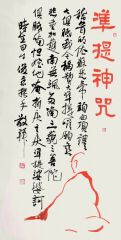 準提神咒
稽首皈依蘇悉帝頭面頂禮
七俱胝我今稱讚大準提惟願慈
悲垂加護南無颯哆喃三藐三菩陀
俱胝喃怛姪他唵折戾主戾準提娑婆訶